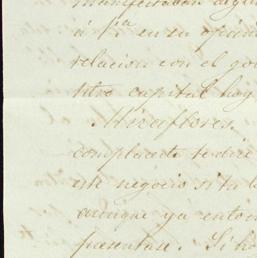 manifestaban algun
á V. en su opinion
relacion con el go
titre capital hay
Miraflores.
complacerle te dire
este negocio si ta l
aunque ya ento
presentase. Si ho